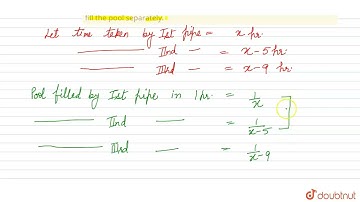 fill the pool separately.
Let time taken by Ist pipe = x hr.
IInd = x-5 hr.
IIIrd = x-9 hr.
Pool filled by Ist pipe in 1 hr. = 1/x
IInd = 1/x-5
IIIrd = 1/x-9
doubtnut